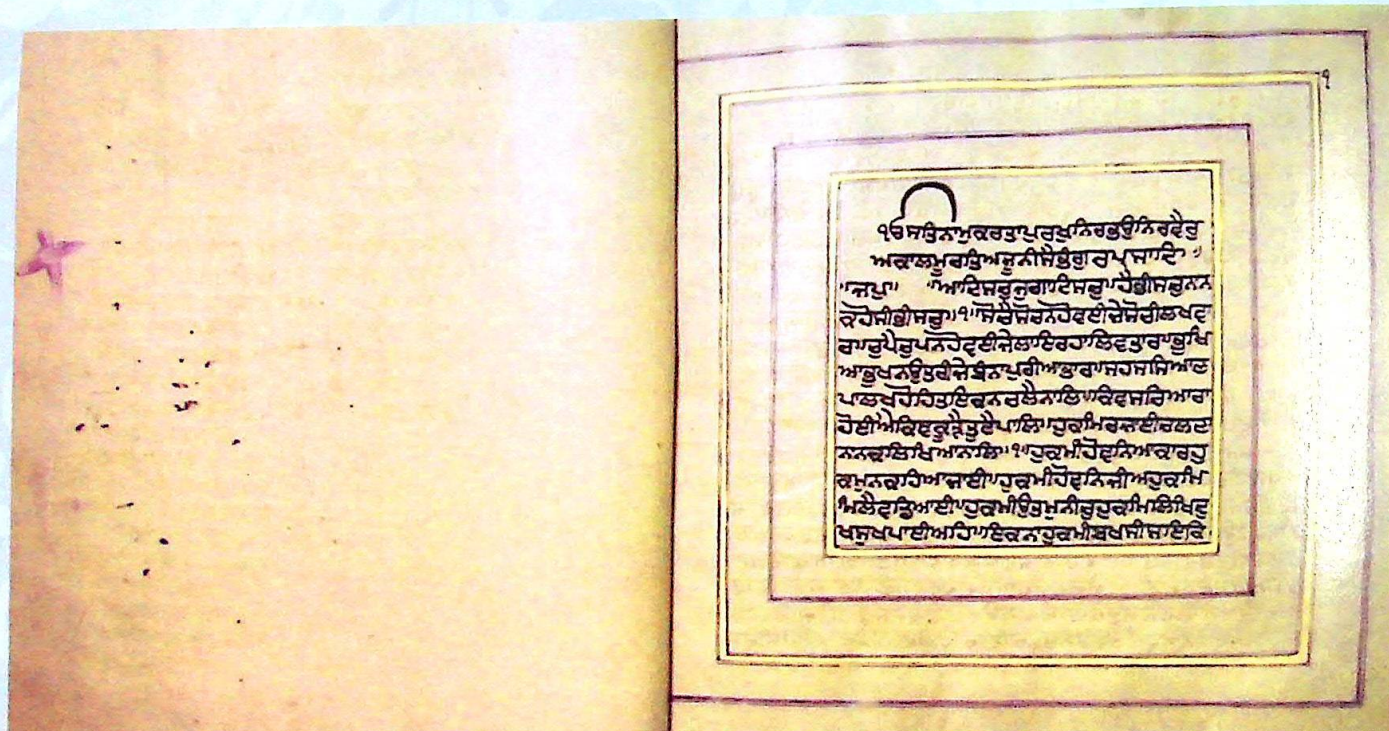 ੧
ੴਸਤਿਨਾਮੁਕਰਤਾਪੁਰਖੁਨਿਰਭਉਨਿਰਵੈਰੁ
ਅਕਾਲਮੂਰਤਿਅਜੂਨੀਸੈਭੰਗੁਰਪ੍ਰਸਾਦਿ॥
॥ਜਪੁ॥ ॥ਆਦਿਸਚੁਜੁਗਾਦਿਸਚੁ॥ਹੈਭੀਸਚੁਨਾਨ
ਕਹੋਸੀਭੀਸਚੁ॥੧॥ਸੋਚੈਸੋਚਨਹੋਵਈਜੇਸੋਚੀਲਖਵਾ
ਰ॥ਚੁਪੈਚੁਪਨਹੋਵਈਜੇਲਾਇਰਹਾਲਿਵਤਾਰ॥ਭੁਖਿ
ਆਭੁਖਨਉਤਰੀਜੇਬੰਨਾਪੁਰੀਆਭਾਰ॥ਸਹਸਸਿਆਣ
ਪਾਲਖਹੋਹਿਤਾਇਕਨਚਲੈਨਾਲਿ॥ਕਿਵਸਚਿਆਰਾ
ਹੋਈਐਕਿਵਕੂੜੈਤੁਟੈਪਾਲਿ॥ਹੁਕਮਿਰਜਾਈਚਲਣਾ
ਨਾਨਕਲਿਖਿਆਨਾਲਿ॥੧॥ਹੁਕਮੀਹੋਵਨਿਆਕਾਰਹੁ
ਕਮੁਨਕਹਿਆਜਾਈ॥ਹੁਕਮੀਹੋਵਨਿਜੀਅਹੁਕਮਿ
ਮਿਲੈਵਡਿਆਈ॥ਹੁਕਮੀਉਤਮੁਨੀਚੁਹੁਕਮਿਲਿਖਿਦੁ
ਖਸੁਖਪਾਈਅਹਿ॥ਇਕਨਾਹੁਕਮੀਬਖਸੀਸਇਕਿ